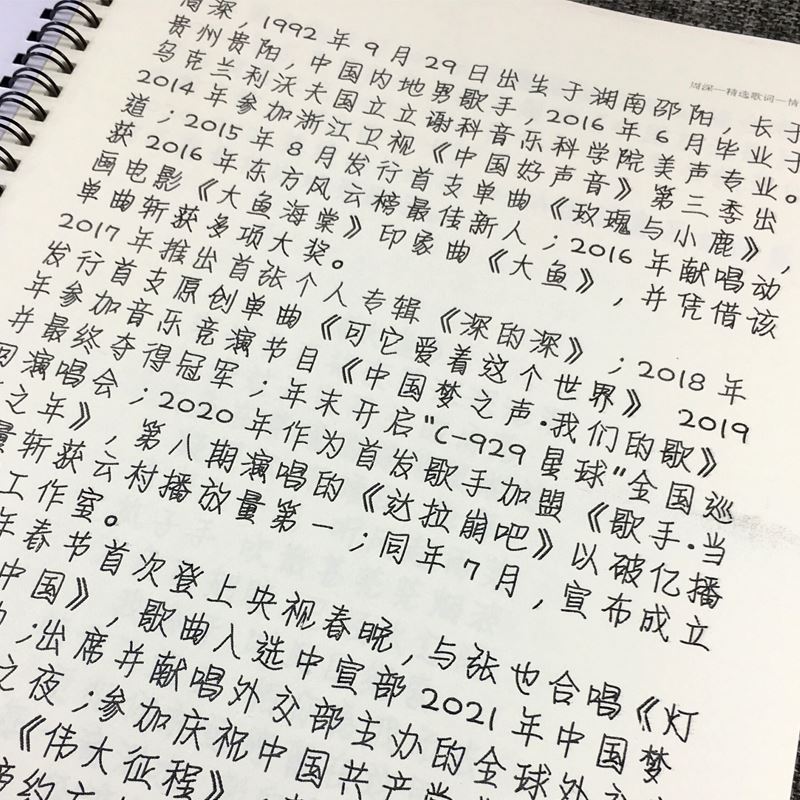 周深—精选歌词—情
周深,1992年9月29日出生于湖南邵阳,长于
贵州贵阳,中国内地男歌手,2016年6月毕业于
乌克兰利沃夫国立立谢科音乐科学院美声专业。
2014年参加浙江卫视《中国好声音》第三季出
道;2015年8月发行首支单曲《玫瑰与小鹿》,
获2016年东方风云榜最佳新人;2016年献唱动
画电影《大鱼海棠》印象曲《大鱼》,并凭借该
单曲斩获多项大奖。
2017年推出首张个人专辑《深的深》;2018年
发行首支原创单曲《可它爱着这个世界》 2019
年参加音乐竞演节目《中国梦之声·我们的歌》
并最终夺得冠军;年末开启"C-929星球"全国巡
回演唱会;2020年作为首发歌手加盟《歌手·当
之年》,第八期演唱的《达拉崩吧》以破亿播
量斩获云村播放量第一;同年7月,宣布成立
工作室。
年春节首次登上央视春晚,与张也合唱《灯
中国》,歌曲入选中宣部2021年中国梦
;出席并献唱外交部主办的全球外交
之夜;参加庆祝中国共产党
《伟大征程》